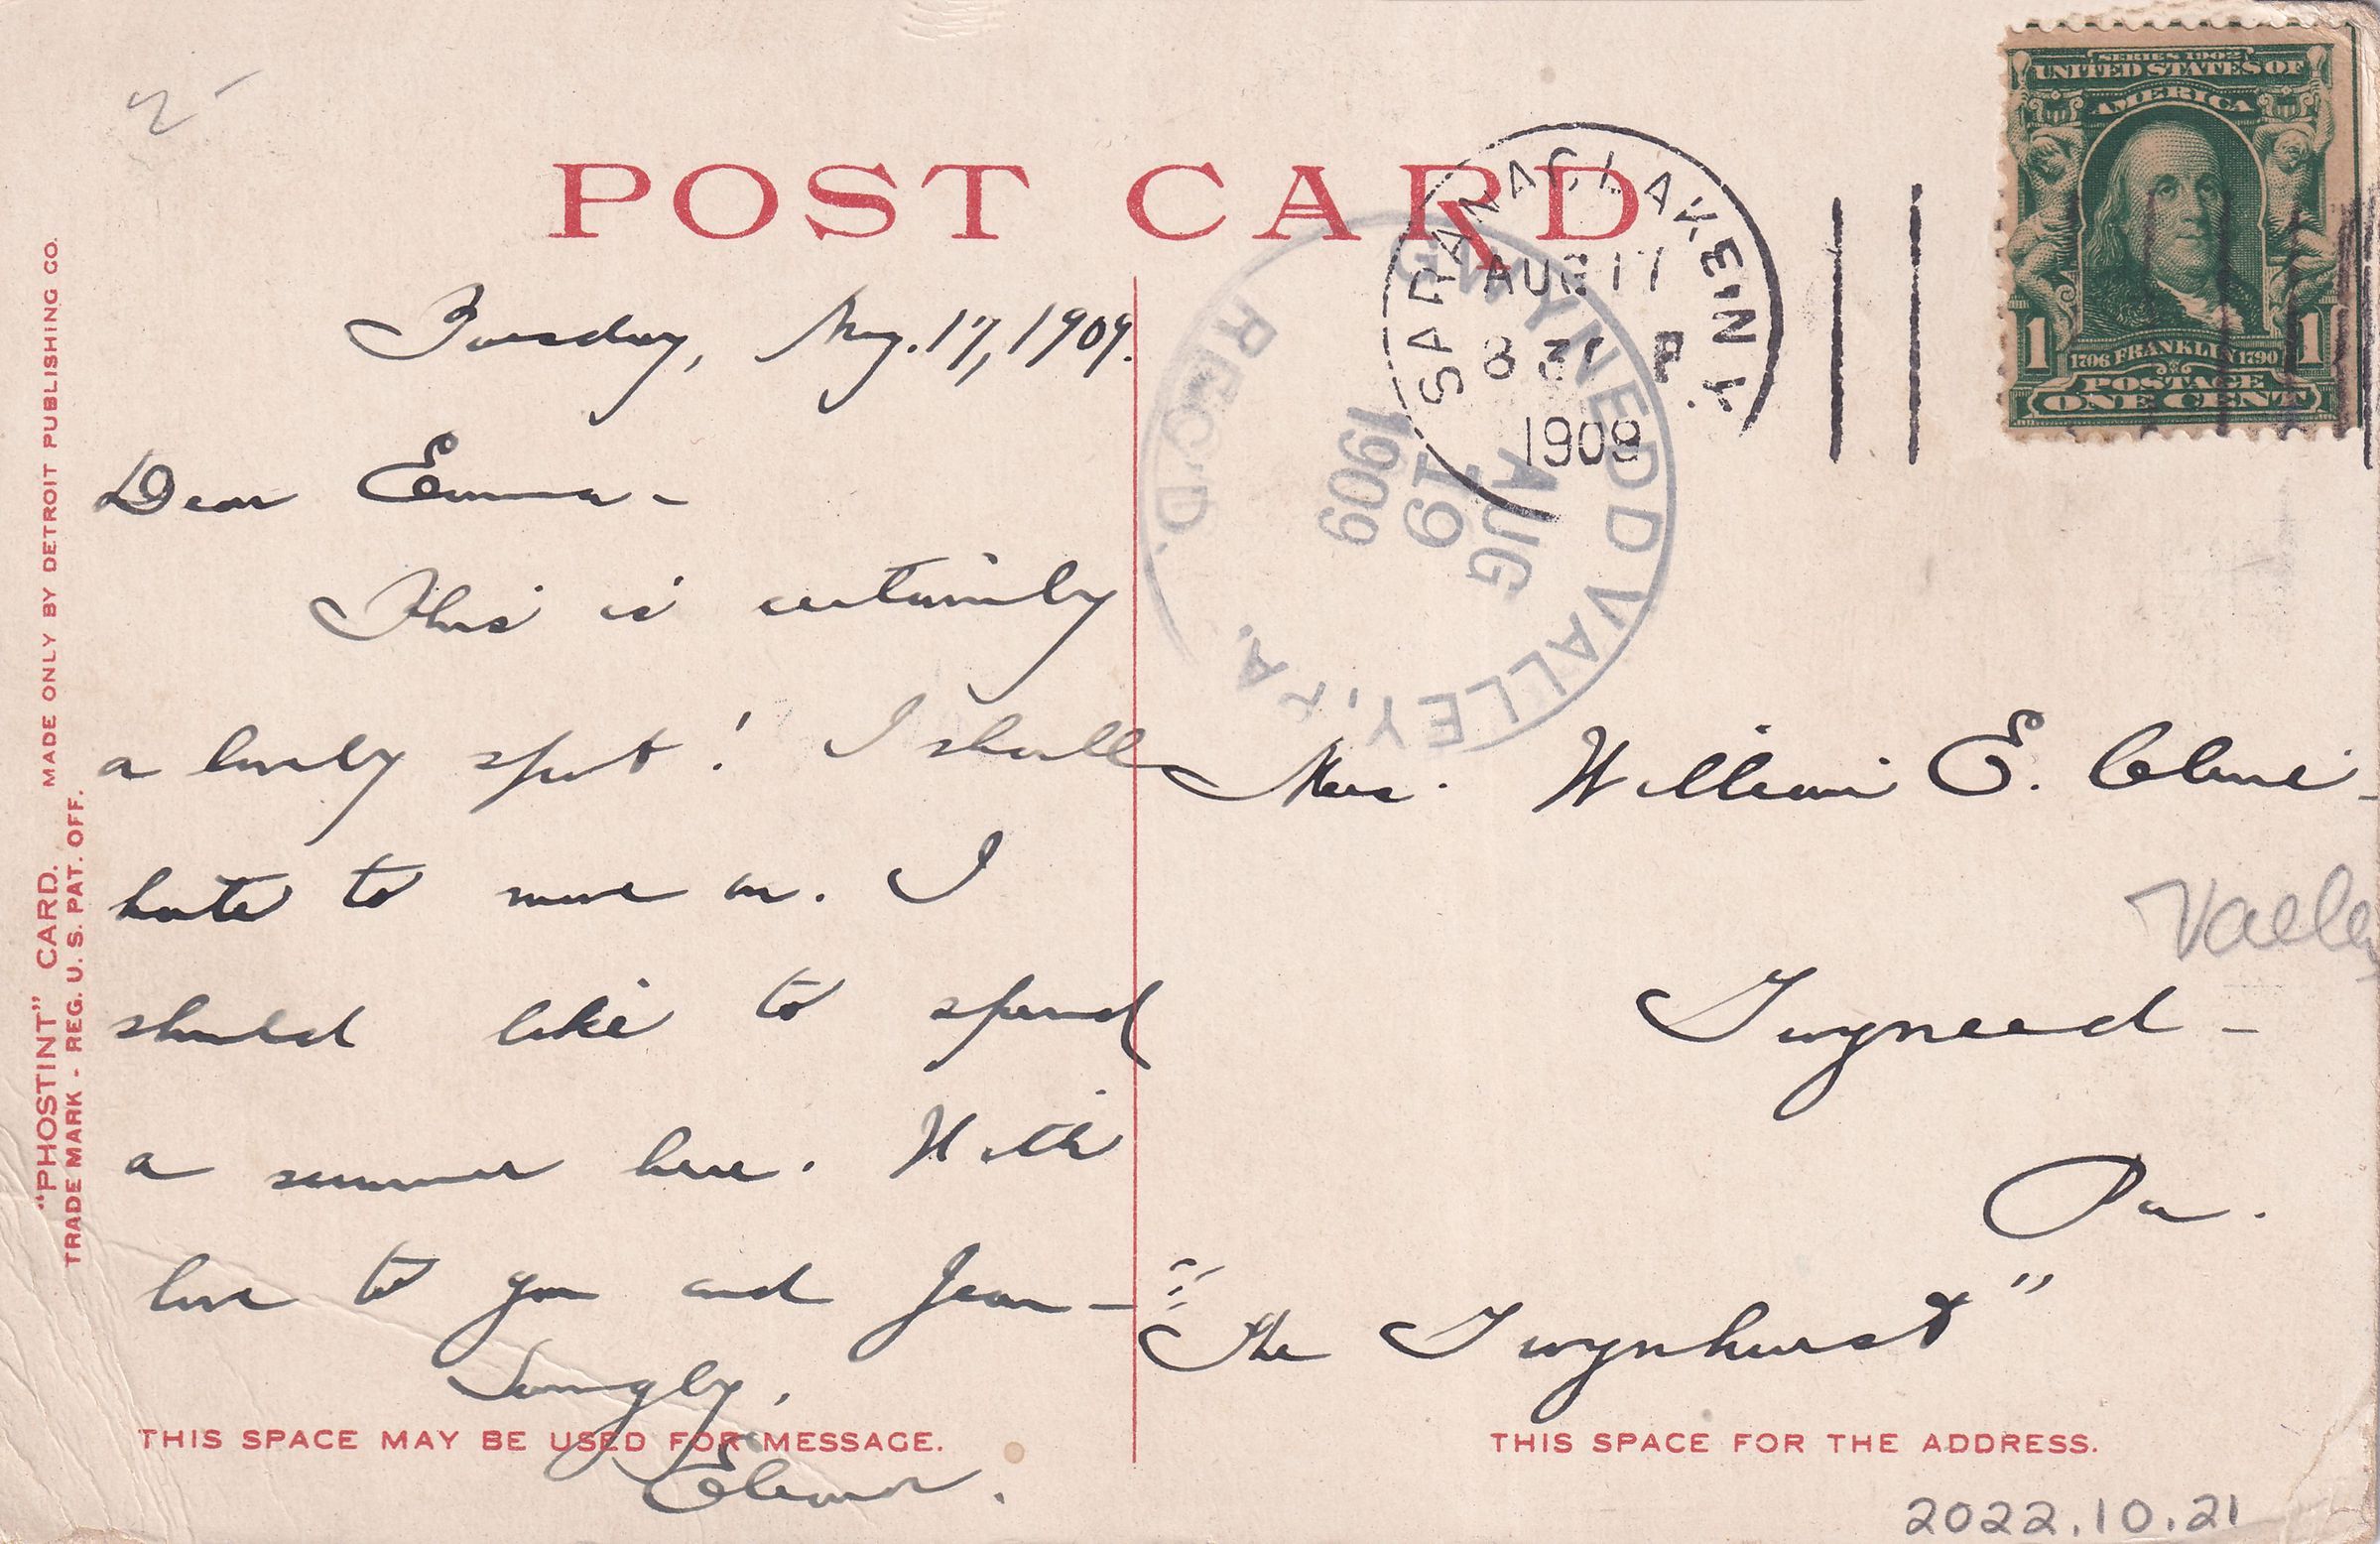 POST CARD
"PHOSTINT" CARD. MADE ONLY BY DETROIT PUBLISHING CO.
TRADE MARK - REG. U. S. PAT. OFF.
SERIES 1902
UNITED STATES OF
AMERICA
1 1
1706 FRANKLIN 1790
POSTAGE
ONE CENT
SARANAC LAKE, N.Y.
AUG 17
8 30 P
1909
GWYNEDD VALLEY, PA.
AUG
19
1909
REC'D.
Tuesday, Aug. 17, 1909.
Dear Emma -
This is certainly
a lovely spot! I shall
hate to move on. I
should like to spend
a summer here. With
love to you and Jean -
Lovingly,
Eleanor.
THIS SPACE MAY BE USED FOR MESSAGE.
Mrs. William E. Cline -
Valley
Gwyneed -
Pa.
"The Gwynhurst"
THIS SPACE FOR THE ADDRESS.
2022.10.21